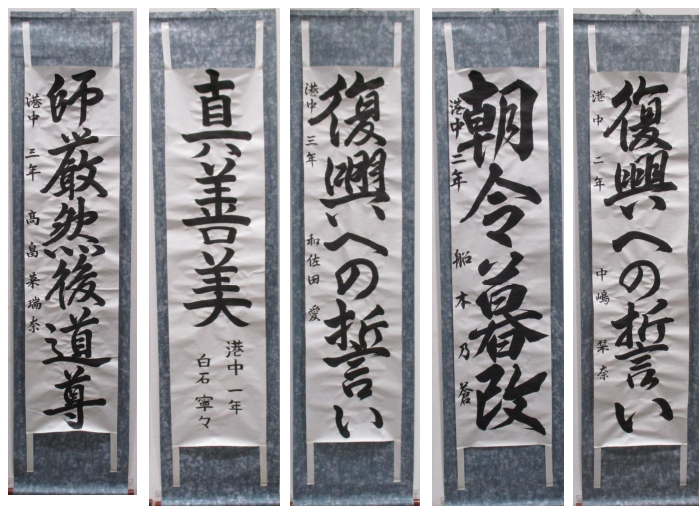 師厳然後道尊
港中 三年 高畠 茉瑞奈
真善美
港中 一年
白石 寧々
復興への誓い
港中 三年 和佐田 愛
朝令暮改
港中 二年 船木 乃蒼
復興への誓い
港中 二年 中嶋 栞奈